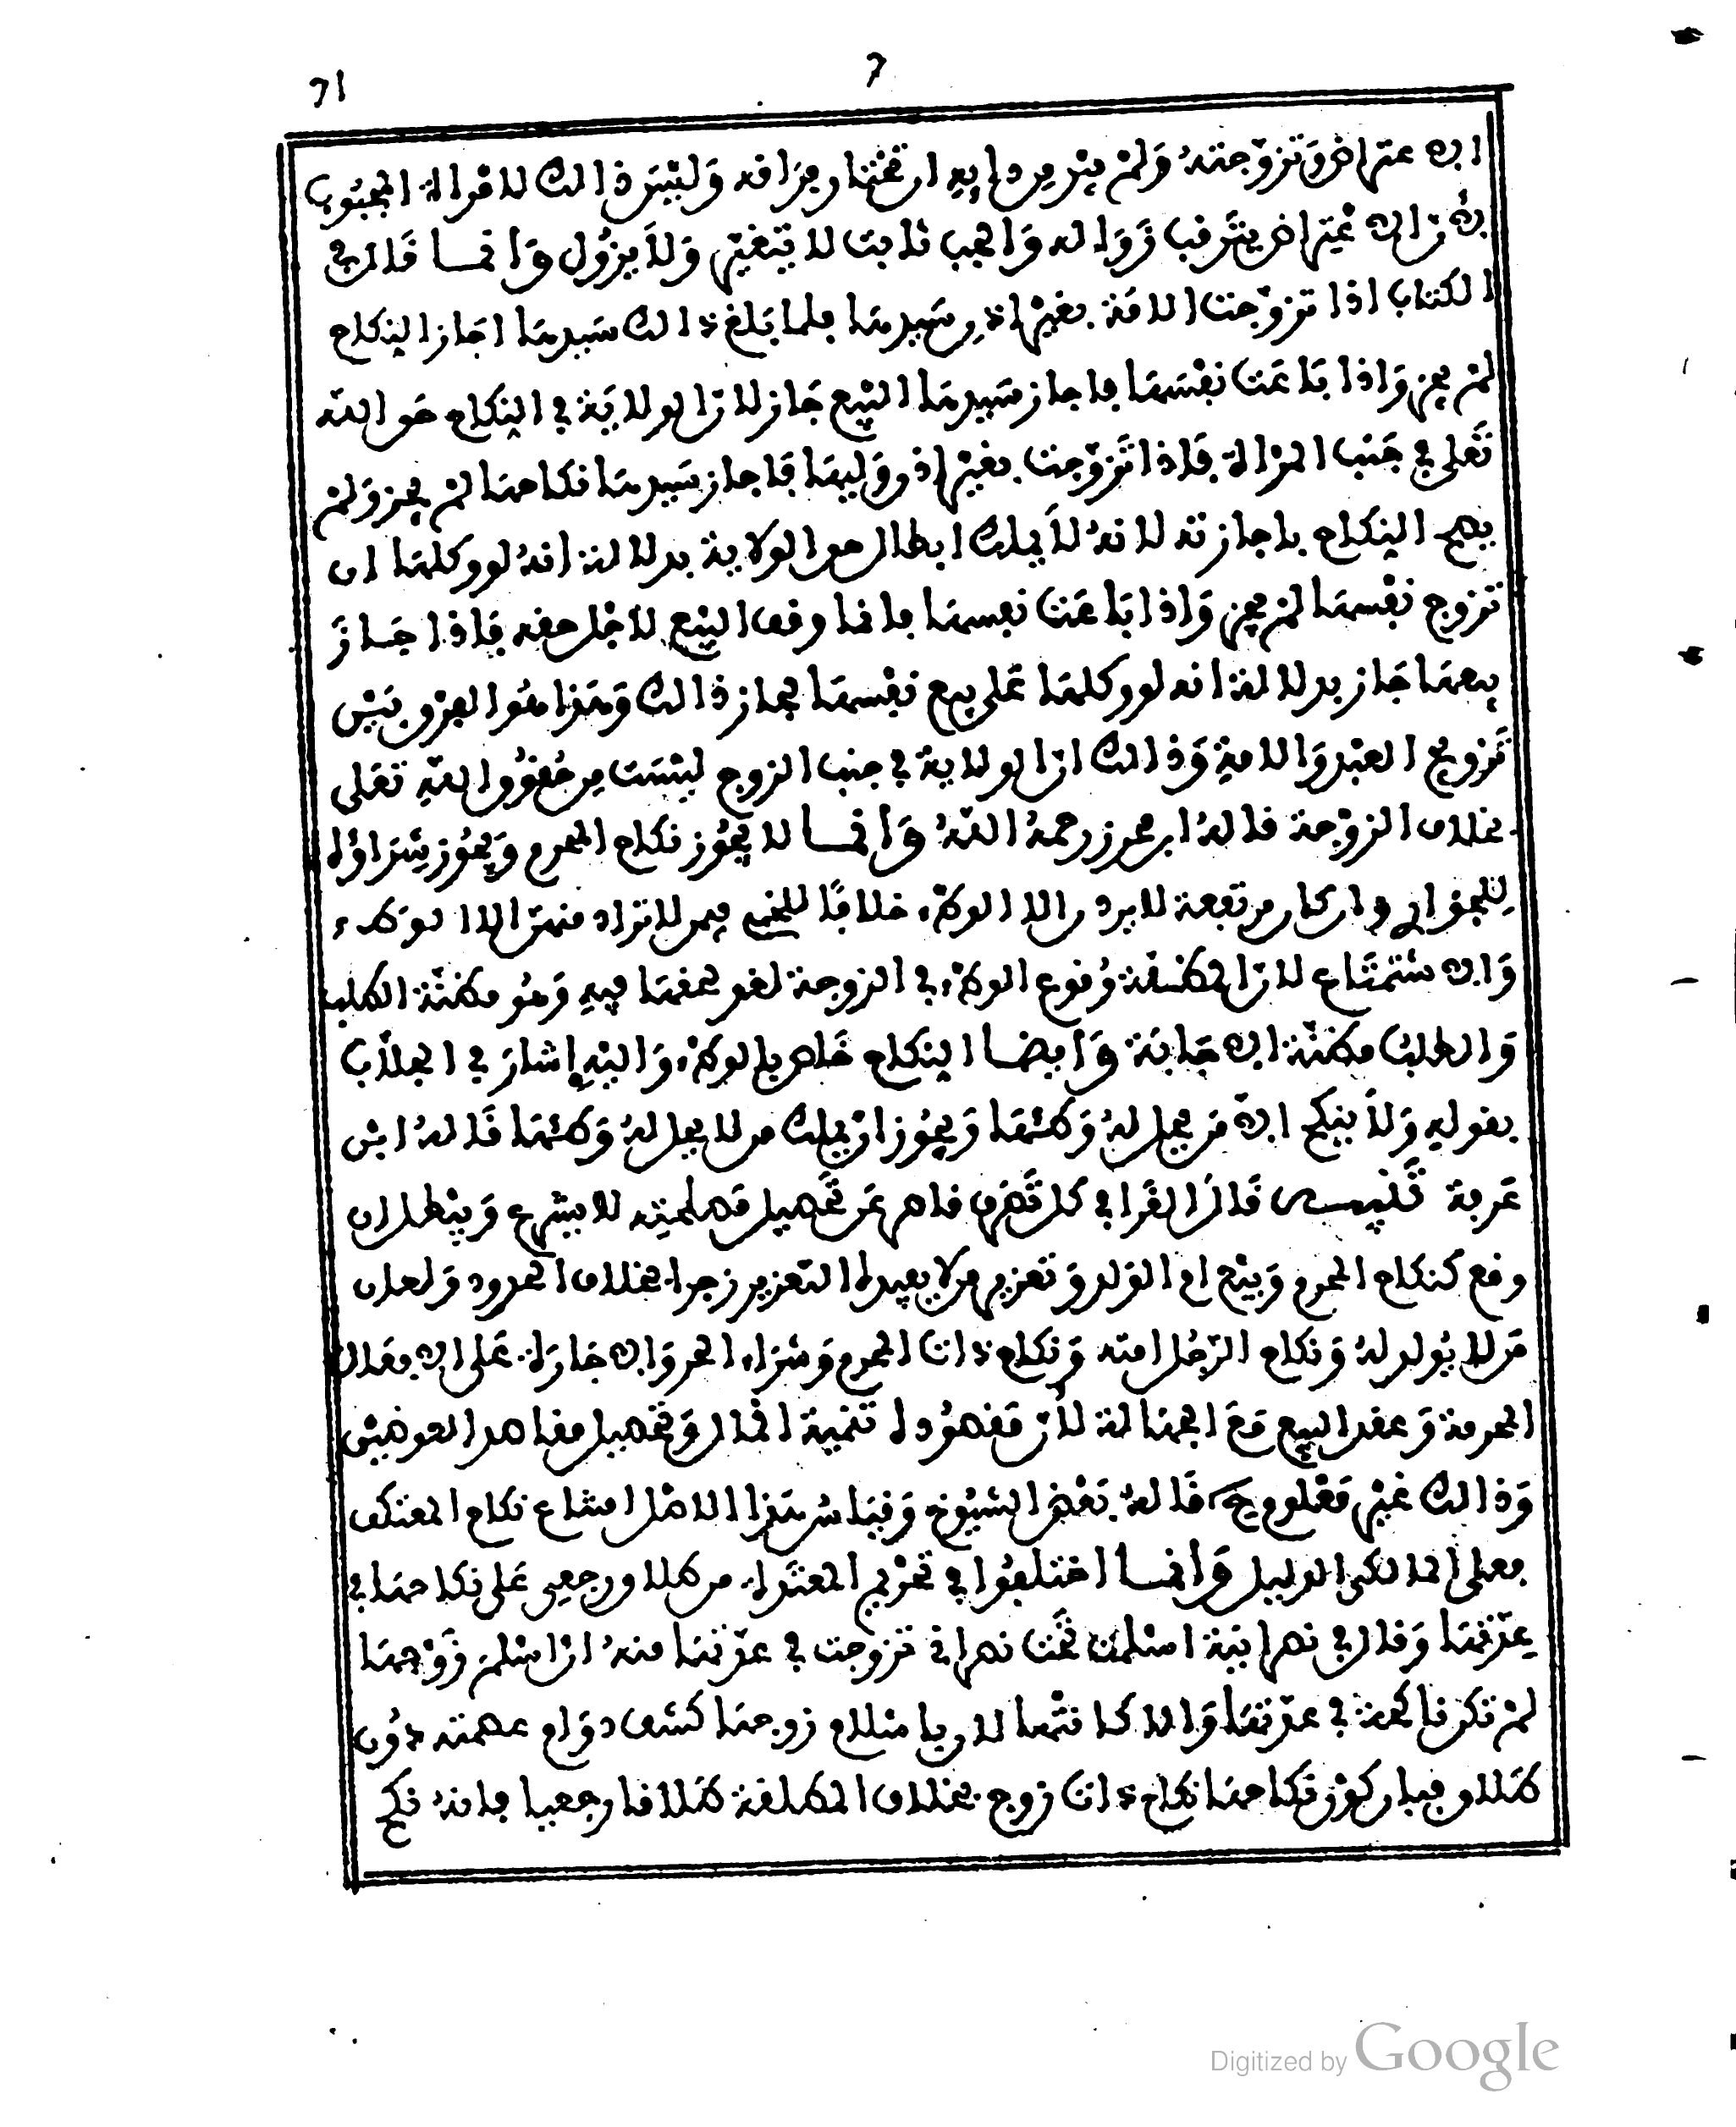 71
7
الاعتراض وتزوجته ولم يبر من دايه ان تختار فراقه وليس ذالك لامراة المجبوب
لان الاعتراض يترقب زواله والجب ثابت لا يتغير ولا يزول وانما قال في
الكتاب اذا تزوجت الامة بغير اذن سيدها فلما بلغ ذالك سيدها اجاز النكاح
لم يجز واذا باعت نفسها فاجاز سيدها البيع جاز لان الولاية في النكاح حق الله
تعلى في جنب المراة فاذا تزوجت بغير اذن وليها فاجاز سيدها نكاحها لم يجز ولم
يصح النكاح باجازته لانه لا يملك ابطال حق الولاية بدلالة انه لو وكلها ان
تزوج نفسها لم يجز واذا باعت نفسها فانما وقف البيع لاجل حقه فاذا جاز
بيعها جاز بدلالة انه لو وكلها على بيع نفسها لجاز ذالك وهذا هو الفرق بين
تزويج العبد والامة وذالك ان الولاية في جنب الزوج ليست من حقوق الله تعلى
بخلاف الزوجة قاله ابن محرز رحمه الله وانما لا يجوز نكاح المحرم ويجوز شراؤه
للجواري وان كان مرتفعة لا يرد الا الوطء خلافا للخمي فيمن لا تراد منهن الا الوطء
والاستمتاع لان المظنة وقوع الوطء في الزوجة لقو لحقها فيه وهو مظنة الطلب
والطلب مظنة الاجابة وايضا النكاح خاص بالوطء واليه اشار في الجلاب
بقوله ولا ينكح الا من يحل له وطئها ويجوز ان يملك من لا يحل له وطئها قاله ابن
عرفة تنبيه قال القرافي كل تصرف قاصر عن تحصيل مصلحته لا يشرع ويبطل ان
وقع كنكاح المحرم وبيع ام الولد وتعزير من لا يفيده التعزير زجرا بخلاف الحدود ولعان
من لا يولد له ونكاح الرجل امته ونكاح ذات المحرم وشراء الحر والاجارة على الافعال
المحرمة وعقد البيع مع الجهالة لان مقصوده تنمية المال وتحصيل مقاصد العوضين
وذالك غير معلوم قاله بعض الشيوخ وقياس هذا الاصل امتناع نكاح المعتكف
فعلى المالكي الدليل وانما اختلفوا في تحريم المعتدة من طلاق رجعي على نكاحها في
عدتها وقال في نصرانية اسلمت تحت نصراني تزوجت في عدتها منه ان اسلم زوجها
لم تكن ناكحة في عدتها والا كانتها لان باسلام زوجها كشف دوام عصمته دون
طلاق فبان كون نكاحها نكاح ذات زوج بخلاف المطلقة طلاقا رجعيا فانه نكح
Digitized by Google